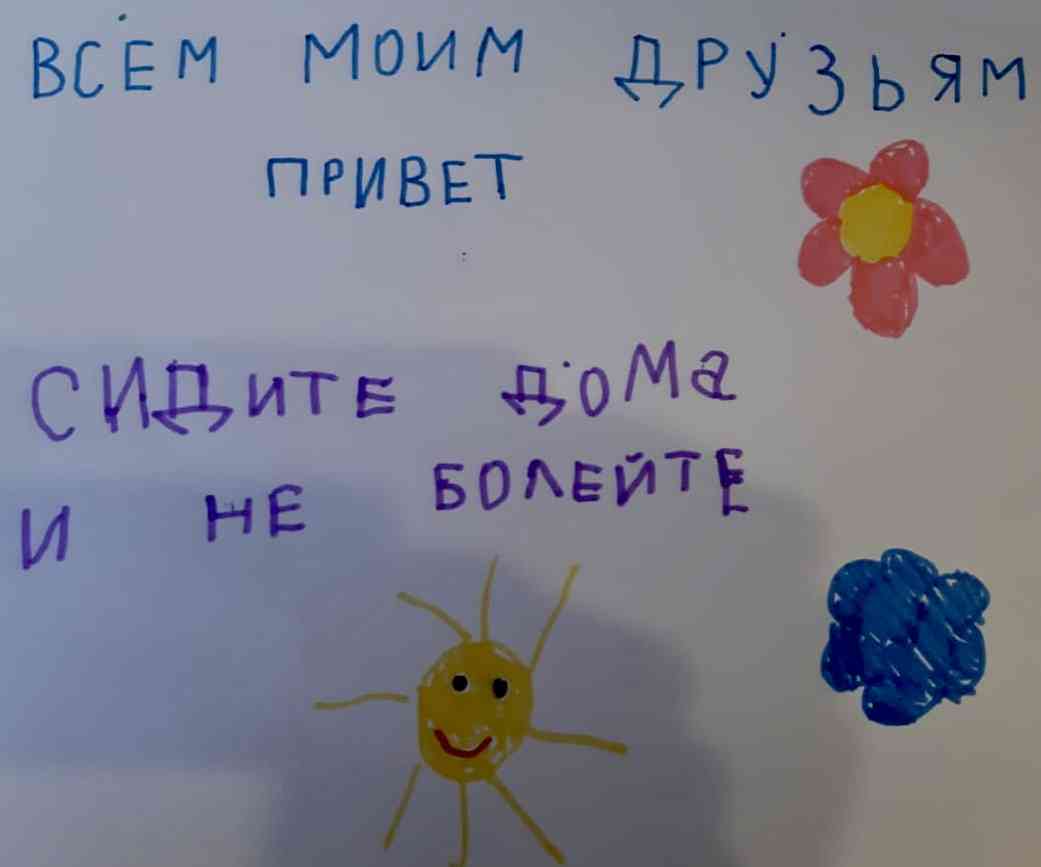 ВСЕМ МОИМ ДРУЗЬЯМ
ПРИВЕТ
СИДИТЕ ДОМа
И НЕ БОЛЕЙТЕ